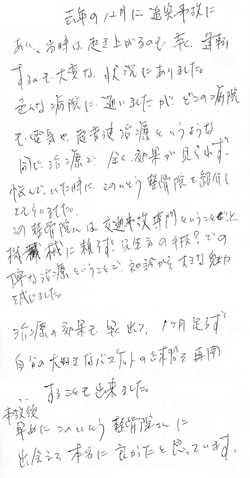 去年の12月に追突事故に
あい、当時は起き上がるのも辛く、運転
するのも大変な状況にありました。
色んな病院に通いましたが、どこの病院
でも電気や超音波治療というような
同じ治療で、全く効果が見られず、
悩んでいた時に、このいう整骨院を紹介し
てもらいました。
この整骨院さんは交通事故専門ということと、
機械に頼らず、先生方の手技?での
丁寧な治療ということで、初診から大きな魅力
を感じました。
治療の効果も早く出て、1ヶ月足らず
自分の大好きなバスケットの練習を再開
することも出来ました。
事故後
早めにこのいう整骨院さんに
出会えて本当に良かったと思っています。